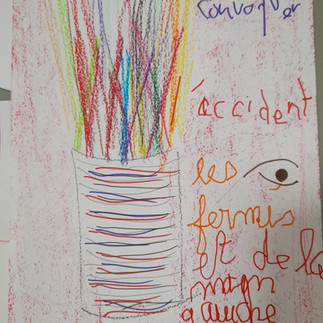 convoquer
l'accident
les
fermés
et de la
main
gauche